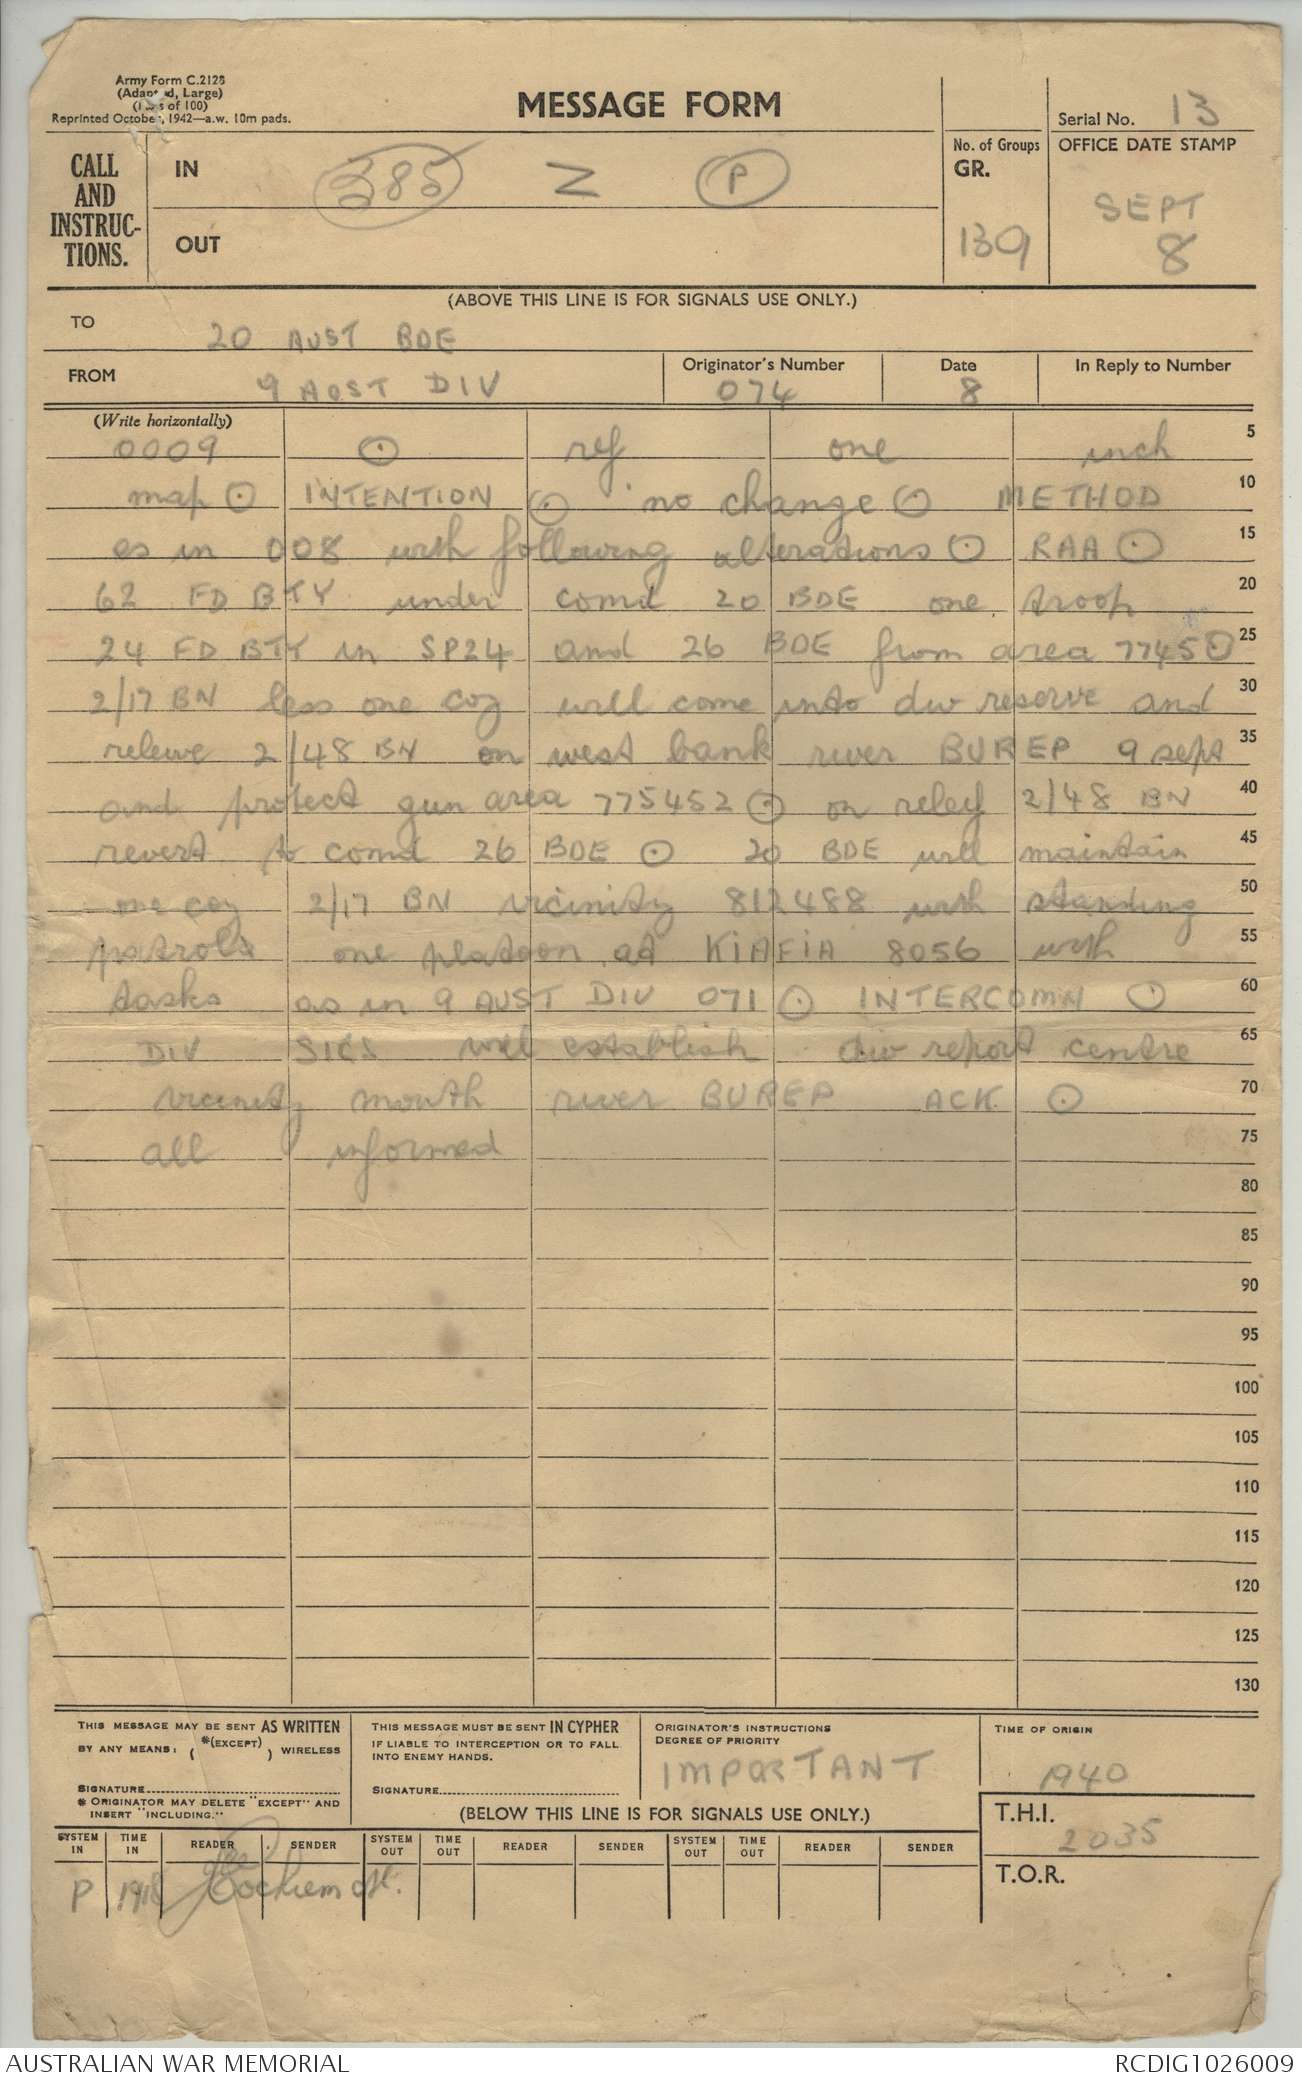 Army Form C.2128
(Adapted, Large)
(Pads of 100)
Reprinted October, 1942—a.w. 10m pads.
MESSAGE FORM
Serial No. 13
CALL AND INSTRUC-TIONS.
IN 385 Z P
OUT
No. of Groups
GR.
139
OFFICE DATE STAMP
SEPT
8
(ABOVE THIS LINE IS FOR SIGNALS USE ONLY.)
TO 20 AUST BDE
FROM 9 AUST DIV
Originator's Number
074
Date
8
In Reply to Number
(Write horizontally)
0009 ⊙ ref one inch 5
map ⊙ INTENTION ⊙ no change ⊙ METHOD 10
as in 008 with following alterations ⊙ RAA ⊙ 15
62 FD BTY under comd 20 BDE one troop 20
24 FD BTY in SP24 and 26 BDE from area 7745 ⊙ 25
2/17 BN less one coy will come into div reserve and 30
relieve 2/48 BN on west bank river BUREP 9 sept 35
and protect gun area 775452 ⊙ on relef 2/48 BN 40
revert to comd 26 BDE ⊙ 20 BDE will maintain 45
one coy 2/17 BN vicinity 812488 with standing 50
patrols one platoon at KIAFIA 8056 with 55
tasks as in 9 AUST DIV 071 ⊙ INTERCOMN ⊙ 60
DIV SIGS will establish div report centre 65
vicinity mouth river BUREP ACK ⊙ 70
all informed 75
80
85
90
95
100
105
110
115
120
125
130
THIS MESSAGE MAY BE SENT AS WRITTEN
BY ANY MEANS: ( *(EXCEPT) ) WIRELESS
SIGNATURE
* ORIGINATOR MAY DELETE "EXCEPT" AND
INSERT "INCLUDING."
THIS MESSAGE MUST BE SENT IN CYPHER
IF LIABLE TO INTERCEPTION OR TO FALL
INTO ENEMY HANDS.
SIGNATURE
ORIGINATOR'S INSTRUCTIONS
DEGREE OF PRIORITY
IMPORTANT
TIME OF ORIGIN
1940
(BELOW THIS LINE IS FOR SIGNALS USE ONLY.)
T.H.I.
2035
T.O.R.
SYSTEM IN TIME IN READER SENDER SYSTEM OUT TIME OUT READER SENDER SYSTEM OUT TIME OUT READER SENDER
P
AUSTRALIAN WAR MEMORIAL RCDIG1026009